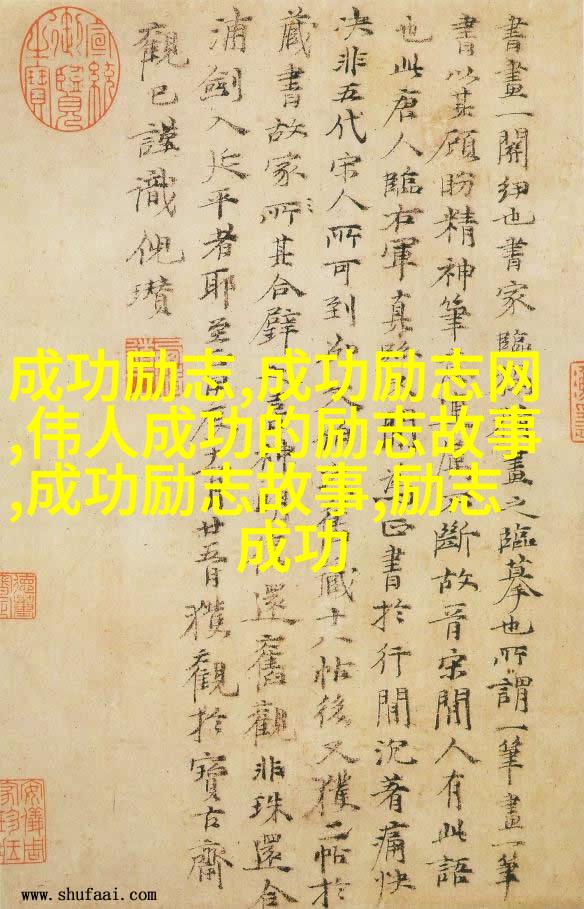 書畫一關紐也書家臨畫之臨摹也所謂一筆畫一筆
書以其顧盼精神筆不斷故晉宋間人有此語
也此唐人臨右軍真書於行間沉著痛快
决非五代宋人所可到藏十八帖後又獲二帖於
藏書故家所其合璧還舊觀非珠還合
浦劍入延平者耶至廿五日獲觀於寶古齋
觀已謹識倪瓚
宣統御覽之寶
成功励志,成功励志网
,伟人成功的励志故事
,成功励志故事,励志
成功
www.shufaai.com